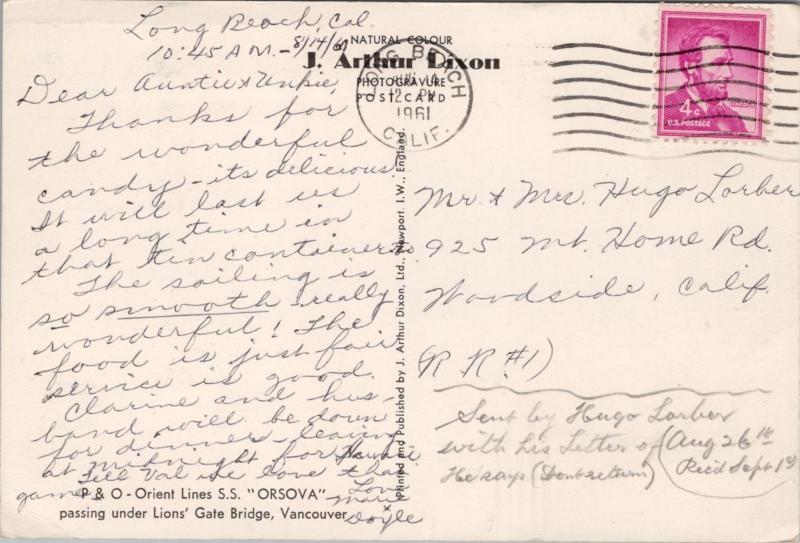 Long Beach, Cal.
10:45 AM - 8/14/61
Dear Auntie & Unkie,
Thanks for
the wonderful
candy - its delicious!
It will last us
a long time in
that tin container.
The sailing is
so smooth - really
wonderful! The
food is just fair
service is good.
Clarine and hus-
band will be down
for dinner - leaving
at midnight for Hawaii
Tell Val we love that
game.
Love
Marie
x
Doyle
NATURAL COLOUR
J. Arthur Dixon
PHOTOGRAVURE
POSTCARD
LONG BEACH
12 PM
1961
CALIF.
4¢
LINCOLN
U.S. POSTAGE
Printed and Published by J. Arthur Dixon, Ltd., Newport, I.W., England.
Mr. & Mrs. Hugo Lorber
925 Mt. Home Rd.
Woodside, Calif.
(R R #1)
Sent by Hugo Lorber
with his Letter of (Aug 26th
He says (Dont return) Rec'd Sept 1st)
P & O - Orient Lines S.S. "ORSOVA"
passing under Lions' Gate Bridge, Vancouver